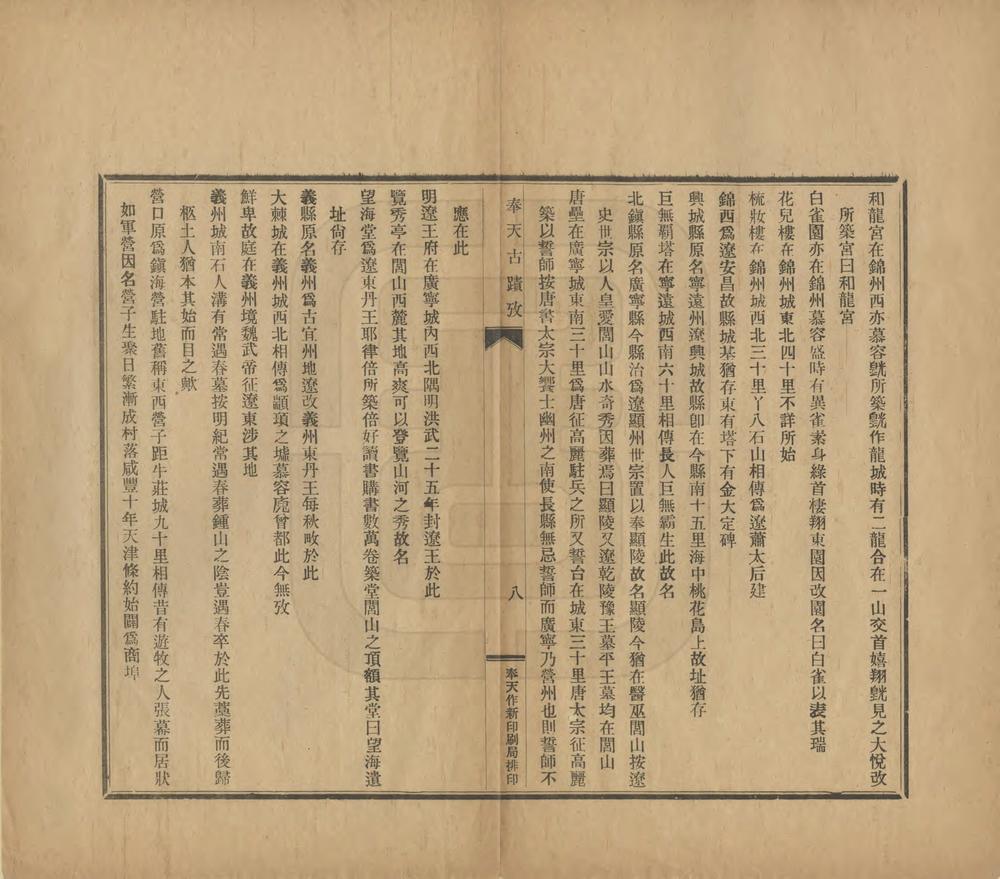 和龍宮在錦州西亦慕容皝所築皝作龍城時有二龍合在一山交首嬉翔皝見之大悅改
所築宮曰和龍宮
白雀園亦在錦州慕容盛時有異雀素身綠首棲翔東園因改園名曰白雀以表其瑞
花兒樓在錦州城東北四十里不詳所始
梳妝樓在錦州城西北三十里丫八石山相傳爲遼蕭太后建
錦西爲遼安昌故縣城基猶存東有塔下有金大定碑
興城縣原名寧遠州遼興城故縣卽在今縣南十五里海中桃花島上故址猶存
巨無霸塔在寧遠城西南六十里相傳長人巨無霸生此故名
北鎭縣原名廣寧縣今縣治爲遼顯州世宗置以奉顯陵故名顯陵今猶在醫巫閭山按遼
史世宗以人皇愛閭山山水奇秀因葬焉曰顯陵又遼乾陵豫王墓平王墓均在閭山
唐壘在廣寧城東南三十里爲唐征高麗駐兵之所又誓台在城東三十里唐太宗征高麗
築以誓師按唐書太宗大饗士幽州之南使長縣無忌誓師而廣寧乃營州也則誓師不
奉天古蹟攷
八
奉天作新印刷局排印
應在此
明遼王府在廣寧城內西北隅明洪武二十五年封遼王於此
覽秀亭在閭山西麓其地高爽可以登覽山河之秀故名
望海堂爲遼東丹王耶律倍所築倍好讀書購書數萬卷築堂閭山之頂額其堂曰望海遺
址尙存
義縣原名義州爲古宜州地遼改義州東丹王每秋畋於此
大棘城在義州城西北相傳爲顓頊之墟慕容廆曾都此今無攷
鮮卑故庭在義州境魏武帝征遼東涉其地
義州城南石人溝有常遇春墓按明紀常遇春葬鍾山之陰豈遇春卒於此先藁葬而後歸
柩土人猶本其始而目之歟
營口原爲鎭海營駐地舊稱東西營子距牛莊城九十里相傳昔有遊牧之人張幕而居狀
如軍營因名營子生聚日繁漸成村落咸豐十年天津條約始闢爲商埠